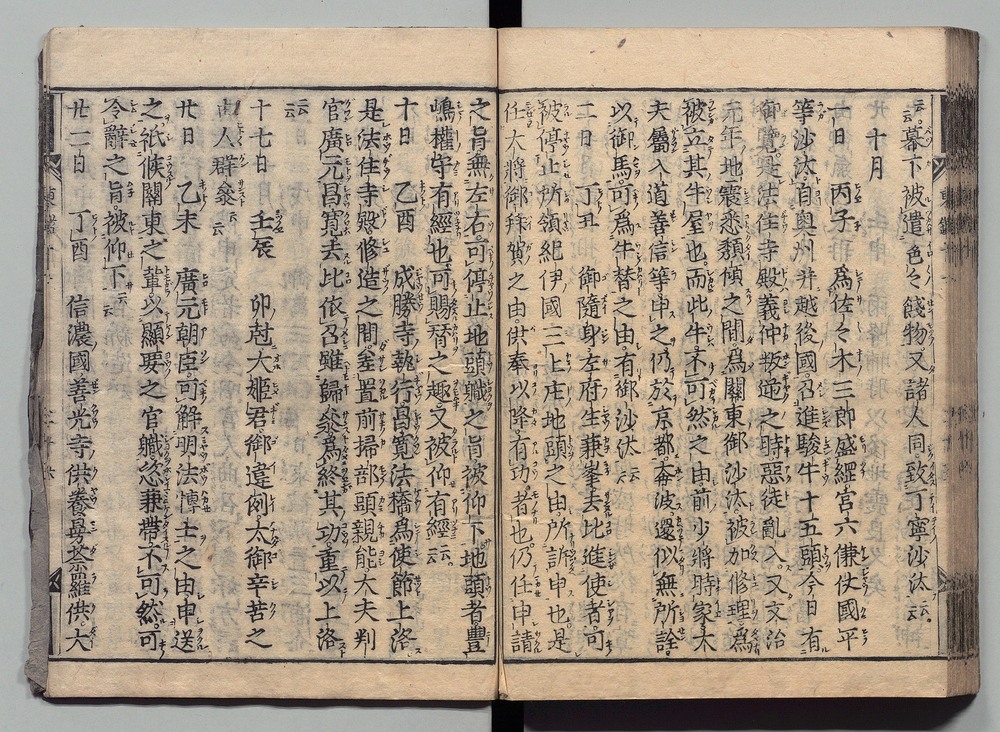 云。幕下被遣色々餞物又諸人同致丁寧沙汰云云
十月
一日 丙子 爲佐々木三郎盛綱宮六傔仗國平
等沙汰自奥州并越後國召進駿牛十五頭今日有
御覽是法住寺殿義仲叛逆之時惡徒亂入又文治
元年地震悉頽傾之間爲關東御沙汰被加修理爲
被立其牛屋也而此牛不可然之由前少將時家大
夫屬入道善信等申之仍於京都奔波還似無所詮
以御馬可爲牛替之由有御沙汰云云
二日 丁丑 御隨身左府生兼峯去比進使者可
被停止所領紀伊國三上庄地頭之由所訴申也是
任大將御拜賀之由供奉以降有功者也仍任申請
之旨無左右可停止地頭軄之旨被仰下地頭者豐
嶋權守有經也可賜替之趣又被仰有經云云
十日 乙酉 成勝寺執行昌寛法橋爲使節上洛
是法住寺殿修造之間差置前掃部頭親能大夫判
官廣元昌寛去比依召雖歸參爲終其功重以上洛
云云
十七日 壬辰 卯尅大姬君御違例太御辛苦之
間人群參云云
廿日 乙未 廣元朝臣可解明法博士之由申送
之祗候關東之輩以顯要之官軄恣兼帶不可然可
令辭之旨被仰下云云
廿二日 丁酉 信濃國善光寺供養曼荼羅供大